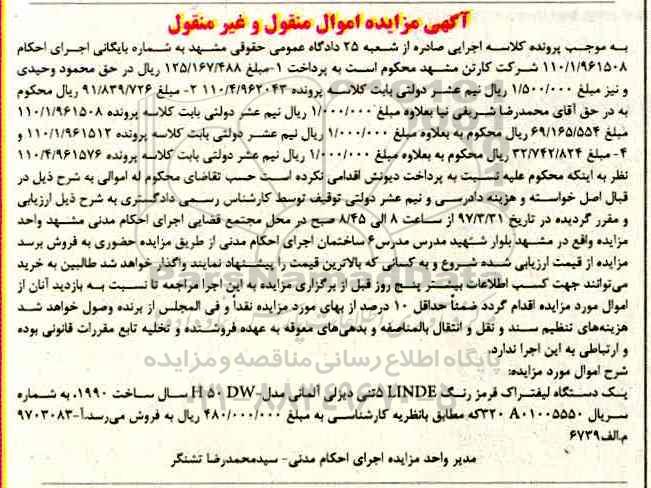 آگهی مزایده اموال منقول و غیر منقول
به موجب پرونده کلاسه اجرایی صادره از شعبه ۲۵ دادگاه عمومی حقوقی مشهد به شماره بایگانی اجرای احکام
۱۱۰/۱/۹۶۱۵۰۸ شرکت کارتن مشهد محکوم است به پرداخت ۱-مبلغ ۱۲۵/۱۶۷/۴۸۸ ریال در حق محمود وحیدی
و نیز مبلغ ۱/۵۰۰/۰۰۰ ریال نیم عشر دولتی بابت کلاسه پرونده ۱۱۰/۴/۹۶۲۰۴۳ ۲- مبلغ ۹۱/۸۳۹/۷۲۶ ریال محکوم
به در حق آقای محمدرضا شریفی نیا بعلاوه مبلغ ۱/۰۰۰/۰۰۰ ریال نیم عشر دولتی بابت کلاسه پرونده ۱۱۰/۱/۹۶۱۵۰۸
مبلغ ۶۹/۱۶۵/۵۵۴ ریال محکوم به بعلاوه مبلغ ۱/۰۰۰/۰۰۰ ریال نیم عشر دولتی بابت کلاسه پرونده ۱۱۰/۱/۹۶۱۵۱۲ و
۴- مبلغ ۳۲/۷۴۲/۸۲۴ ریال محکوم به بعلاوه مبلغ ۱/۰۰۰/۰۰۰ ریال نیم عشر دولتی بابت کلاسه پرونده ۱۱۰/۴/۹۶۱۵۷۶
نظر به اینکه محکوم علیه نسبت به پرداخت دیونش اقدامی نکرده است حسب تقاضای محکوم له اموالی به شرح ذیل در
قبال اصل خواسته و هزینه دادرسی و نیم عشر دولتی توقیف توسط کارشناس رسمی دادگستری به شرح ذیل ارزیابی
و مقرر گردیده در تاریخ ۹۷/۳/۳۱ از ساعت ۸ الی ۸/۴۵ صبح در محل مجتمع قضایی اجرای احکام مدنی مشهد واحد
مزایده واقع در مشهد بلوار شهید مدرس مدرس۶ ساختمان اجرای احکام مدنی از طریق مزایده حضوری به فروش برسد
مزایده از قیمت ارزیابی شده شروع و به کسانی که بالاترین قیمت را پیشنهاد نمایند واگذار خواهد شد طالبین به خرید
می‌توانند جهت کسب اطلاعات بیشتر پنج روز قبل از برگزاری مزایده به این اجرا مراجعه تا نسبت به بازدید آنان از
اموال مورد مزایده اقدام گردد ضمناً حداقل ۱۰ درصد از بهای مورد مزایده نقداً و فی المجلس از برنده وصول خواهد شد
هزینه‌های تنظیم سند و نقل و انتقال بالمناصفه و بدهی‌های معوقه به عهده فروشنده و تخلیه تابع مقررات قانونی بوده
و ارتباطی به این اجرا ندارد.
شرح اموال مورد مزایده:
یک دستگاه لیفتراک قرمز رنگ LINDE ۵تنی دیزلی آلمانی مدل H ۵۰ DW-سال ساخت ۱۹۹۰، به شماره
سریال ۳۲۰ A۰۱۰۰۵۵۵۰که مطابق بانظریه کارشناسی به مبلغ ۴۸۰/۰۰۰/۰۰۰ ریال به فروش می‌رسد.آ-۹۷۰۳۰۸۳
م.الف۶۷۳۹
مدیر واحد مزایده اجرای احکام مدنی- سیدمحمدرضا تشنگر
ParsNamadData
پایگاه اطلاع رسانی مناقصه و مزایده
۰۲۱-۸۸۳۴۹۶۷۰-۵